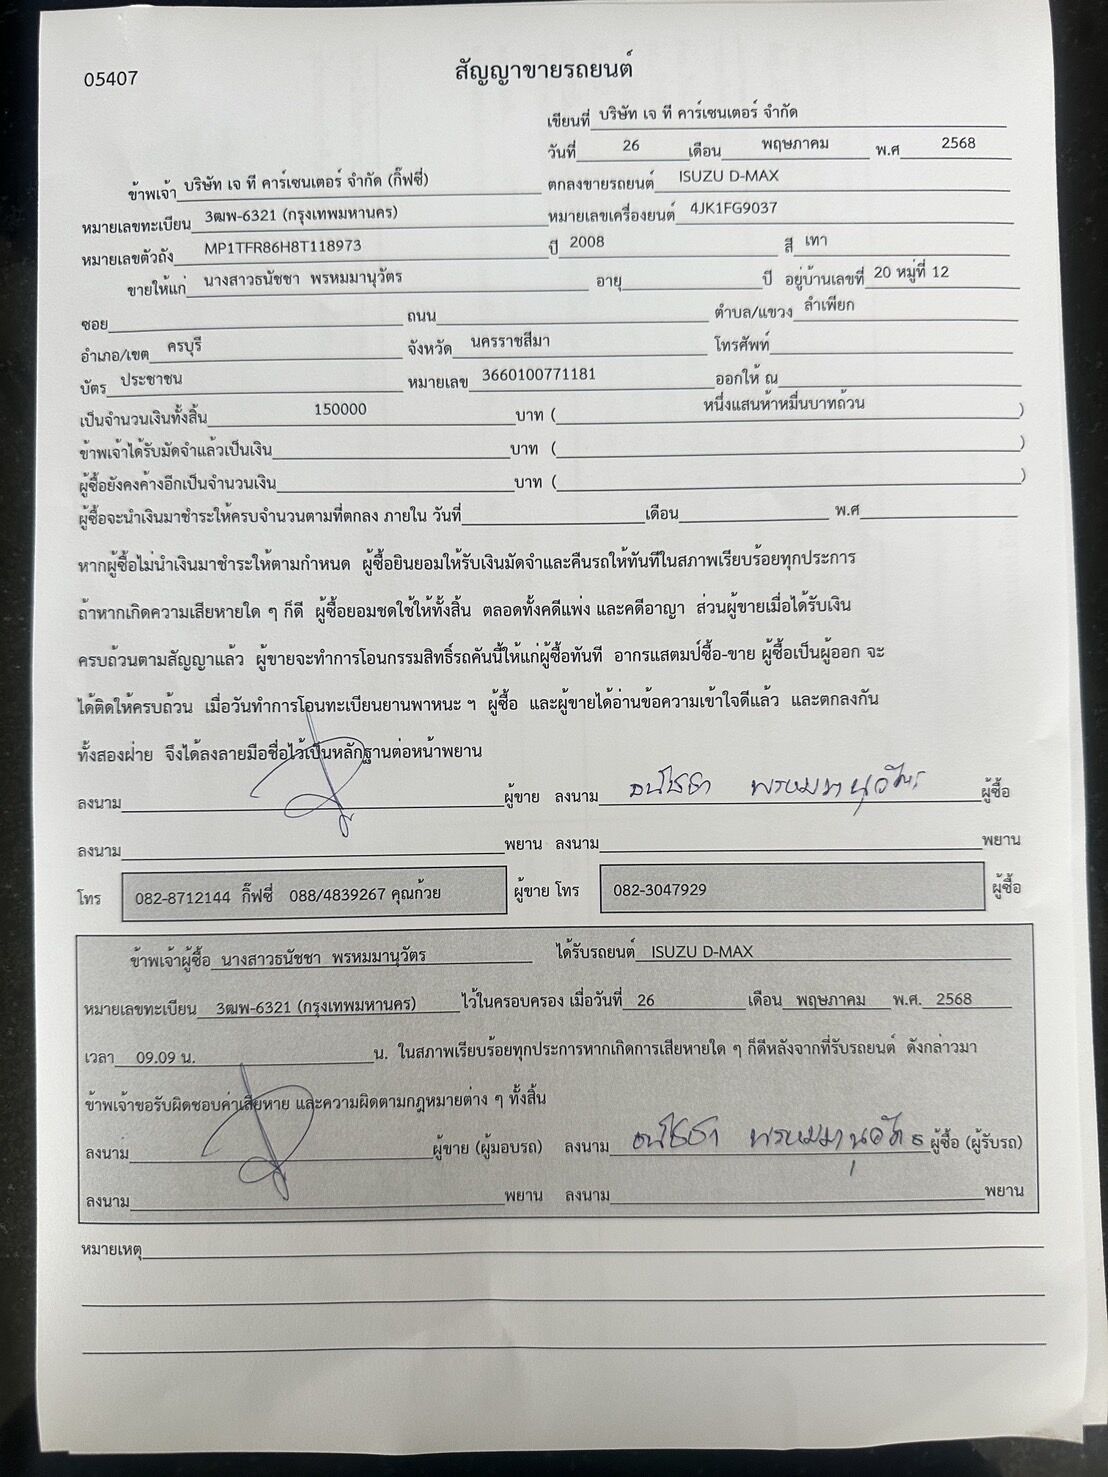 05407
สัญญาขายรถยนต์
เขียนที่ บริษัท เจ ที คาร์เซนเตอร์ จำกัด
วันที่ 26 เดือน พฤษภาคม พ.ศ 2568
ข้าพเจ้า บริษัท เจ ที คาร์เซนเตอร์ จำกัด (กิ๊ฟซี่) ตกลงขายรถยนต์ ISUZU D-MAX
หมายเลขทะเบียน 3ฒพ-6321 (กรุงเทพมหานคร) หมายเลขเครื่องยนต์ 4JK1FG9037
หมายเลขตัวถัง MP1TFR86H8T118973 ปี 2008 สี เทา
ขายให้แก่ นางสาวธนัชชา พรหมมานุวัตร อายุ ปี อยู่บ้านเลขที่ 20 หมู่ที่ 12
ซอย ถนน ตำบล/แขวง ลำเพียก
อำเภอ/เขต ครบุรี จังหวัด นครราชสีมา โทรศัพท์
บัตร ประชาชน หมายเลข 3660100771181 ออกให้ ณ
เป็นจำนวนเงินทั้งสิ้น 150000 บาท ( หนึ่งแสนห้าหมื่นบาทถ้วน )
ข้าพเจ้าได้รับมัดจำแล้วเป็นเงิน บาท ( )
ผู้ซื้อยังคงค้างอีกเป็นจำนวนเงิน บาท ( )
ผู้ซื้อจะนำเงินมาชำระให้ครบจำนวนตามที่ตกลง ภายใน วันที่ เดือน พ.ศ
หากผู้ซื้อไม่นำเงินมาชำระให้ตามกำหนด ผู้ซื้อยินยอมให้รับเงินมัดจำและคืนรถให้ทันทีในสภาพเรียบร้อยทุกประการ
ถ้าหากเกิดความเสียหายใด ๆ ก็ดี ผู้ซื้อยอมชดใช้ให้ทั้งสิ้น ตลอดทั้งคดีแพ่ง และคดีอาญา ส่วนผู้ขายเมื่อได้รับเงิน
ครบถ้วนตามสัญญาแล้ว ผู้ขายจะทำการโอนกรรมสิทธิ์รถคันนี้ให้แก่ผู้ซื้อทันที อากรแสตมป์ซื้อ-ขาย ผู้ซื้อเป็นผู้ออก จะ
ได้ติดให้ครบถ้วน เมื่อวันทำการโอนทะเบียนยานพาหนะ ฯ ผู้ซื้อ และผู้ขายได้อ่านข้อความเข้าใจดีแล้ว และตกลงกัน
ทั้งสองฝ่าย จึงได้ลงลายมือชื่อไว้เป็นหลักฐานต่อหน้าพยาน
ลงนาม ผู้ขาย ลงนาม ธนัชชา พรหมมานุวัตร ผู้ซื้อ
ลงนาม พยาน ลงนาม พยาน
โทร 082-8712144 กิ๊ฟซี่ 088/4839267 คุณก้วย ผู้ขาย โทร 082-3047929 ผู้ซื้อ
ข้าพเจ้าผู้ซื้อ นางสาวธนัชชา พรหมมานุวัตร ได้รับรถยนต์ ISUZU D-MAX
หมายเลขทะเบียน 3ฒพ-6321 (กรุงเทพมหานคร) ไว้ในครอบครอง เมื่อวันที่ 26 เดือน พฤษภาคม พ.ศ. 2568
เวลา 09.09 น. น. ในสภาพเรียบร้อยทุกประการหากเกิดการเสียหายใด ๆ ก็ดีหลังจากที่รับรถยนต์ ดังกล่าวมา
ข้าพเจ้าขอรับผิดชอบค่าเสียหาย และความผิดตามกฎหมายต่าง ๆ ทั้งสิ้น
ลงนาม ผู้ขาย (ผู้มอบรถ) ลงนาม ธนัชชา พรหมมานุวัตร ผู้ซื้อ (ผู้รับรถ)
ลงนาม พยาน ลงนาม พยาน
หมายเหตุ